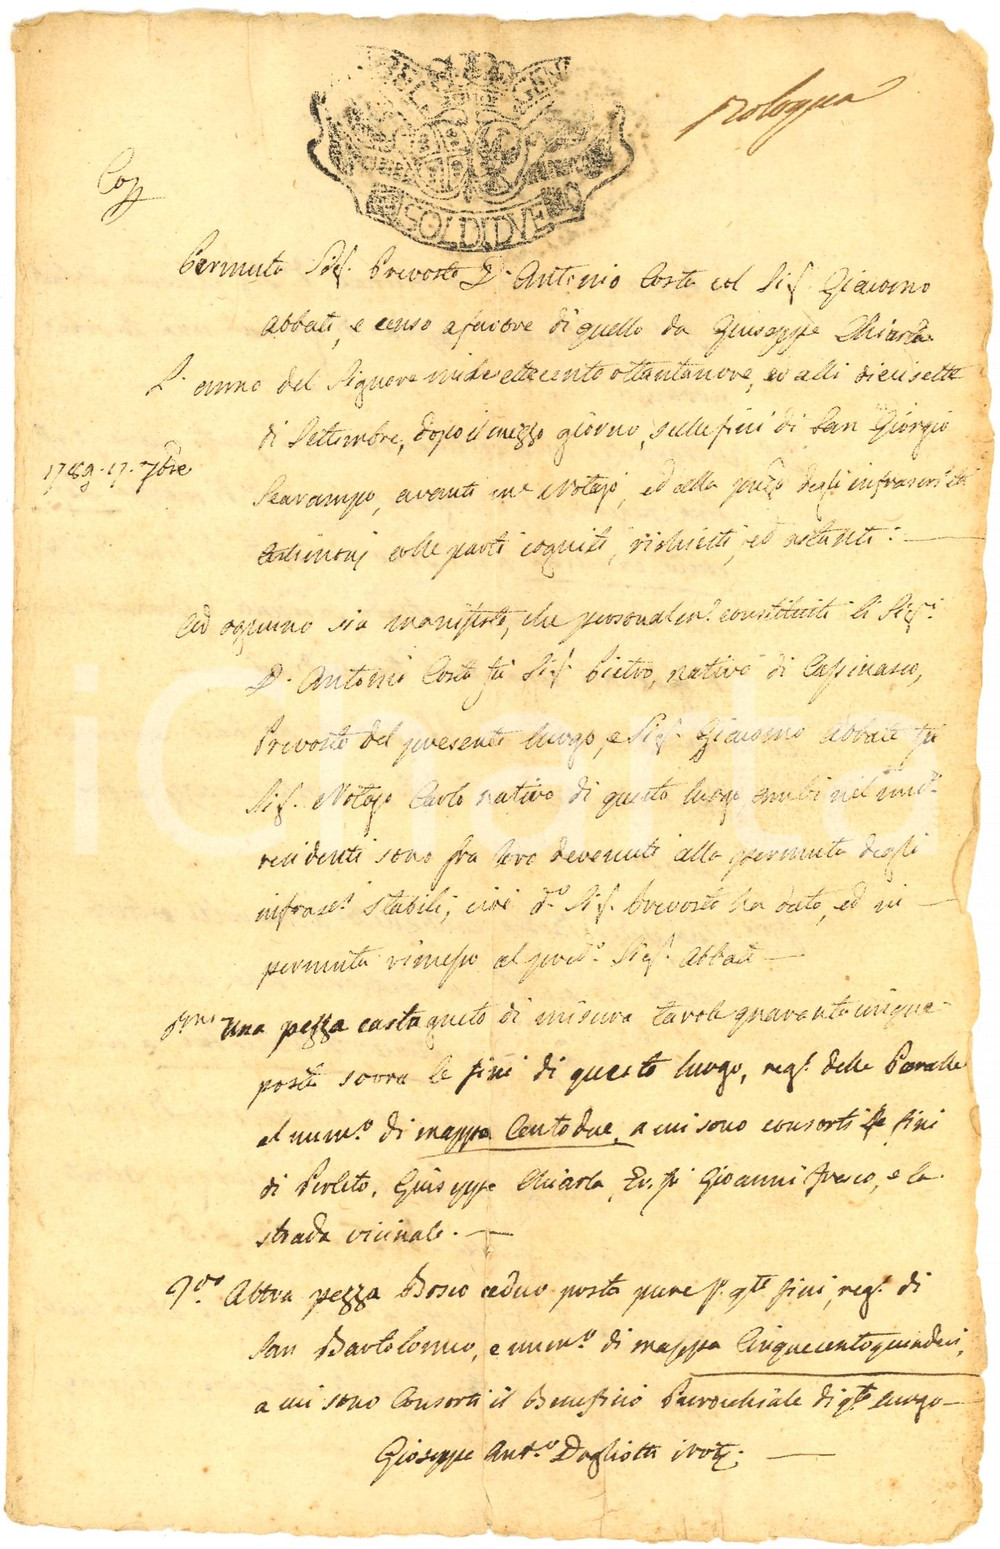 Bologna
SOLDI DUE
Cop
Permuta Sig. Prevosto D. Antonio Costa col Sig. Giacomo
Abbate, e censo a favore di quello da Giuseppe Chiarla
L'anno del Signore mille settecento ottantanove, ed alli diecisette
di Settembre, dopo il mezzo giorno, sulle fini di San Giorgio
1789. 17. 7bre
Scarampo, avanti me Notajo, ed alla degli infrascritti
testimonj colle parti cogniti, richiesti, ed astanti:
Ad ognuno sia manifesto, che personalm. constituiti li Sig.i
D. Antonio Costa fu Sig. Pietro, nativo di Cassinasco,
Prevosto del presente luogo, e Sig. Giacomo Abbate fu
Sig. Notajo Carlo nativo di questo luogo ambi nel med.
residenti sono fra loro devenuti alla permuta degli
infrasc.i stabili, cioè d.o Sig. Prevosto ha dato, ed in
permuta rimesso al pred.o Sig. Abbate
Una pezza castagneto di misura tavole quaranta cinque
posta sovra le fini di questo luogo, reg. delle
al num.o di mappa Cento due, a cui sono consorti le fini
di Perleto, Giuseppe Chiarla, fu Gioanni Fresco, e la
strada vicinale.
2do Altra pezza Bosco ceduo posta pure s. q.te fini, reg. di
San Bartolomeo, e num.o di mappa Cinquecentoquindeci,
a cui sono Consorti il Beneficio Parochiale di q.to luogo
Giuseppe Ant.o Dogliotti Not.
iCharta